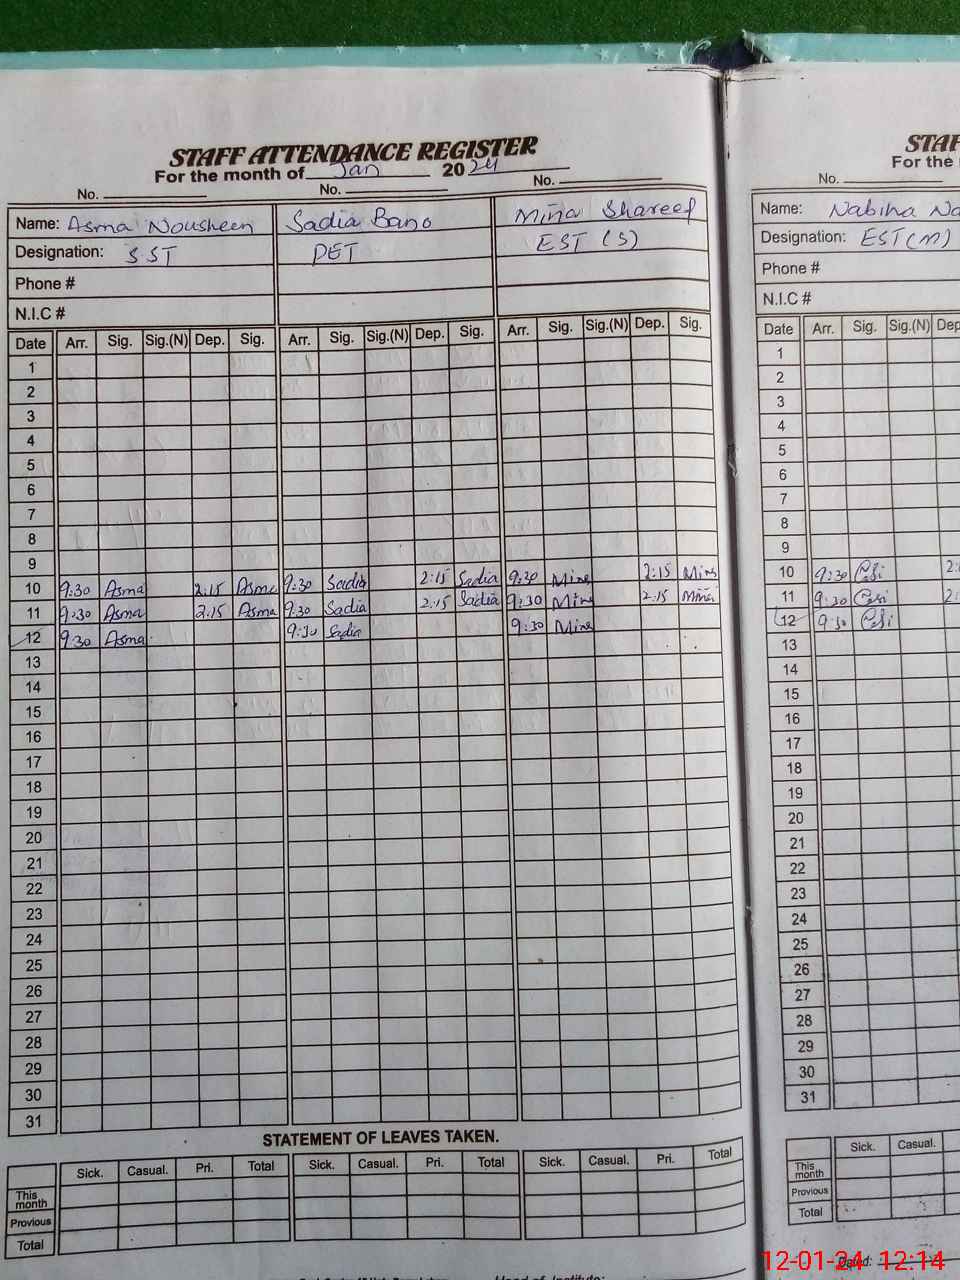 STAFF ATTENDANCE REGISTER
For the month of Jan 2024
No. No. No.
Name: Asma Nousheen Sadia Bano Mina Shareef
Designation: SST PET EST (S)
Phone #
N.I.C #
Date Arr. Sig. Sig.(N) Dep. Sig. Arr. Sig. Sig.(N) Dep. Sig. Arr. Sig. Sig.(N) Dep. Sig.
1
2
3
4
5
6
7
8
9
10 9:30 Asma 2:15 Asma 9:30 Sadia 2:15 Sadia 9:30 Mina 2:15 Mina
11 9:30 Asma 2:15 Asma 9:30 Sadia 2:15 Sadia 9:30 Mina 2:15 Mina
12 9:30 Asma 9:30 Sadia 9:30 Mina
13
14
15
16
17
18
19
20
21
22
23
24
25
26
27
28
29
30
31
STATEMENT OF LEAVES TAKEN.
Sick. Casual. Pri. Total Sick. Casual. Pri. Total Sick. Casual. Pri. Total
This month
Provious
Total
Head of Institute:
STAF
For the
No.
Name: Nabiha
Designation: EST (M)
Phone #
N.I.C #
Date Arr. Sig. Sig.(N) Dep
1
2
3
4
5
6
7
8
9
10 9:30
11 9:30
12 9:30
13
14
15
16
17
18
19
20
21
22
23
24
25
26
27
28
29
30
31
Sick. Casual.
This month
Provious
Total
Dated:
12-01-24 12:14